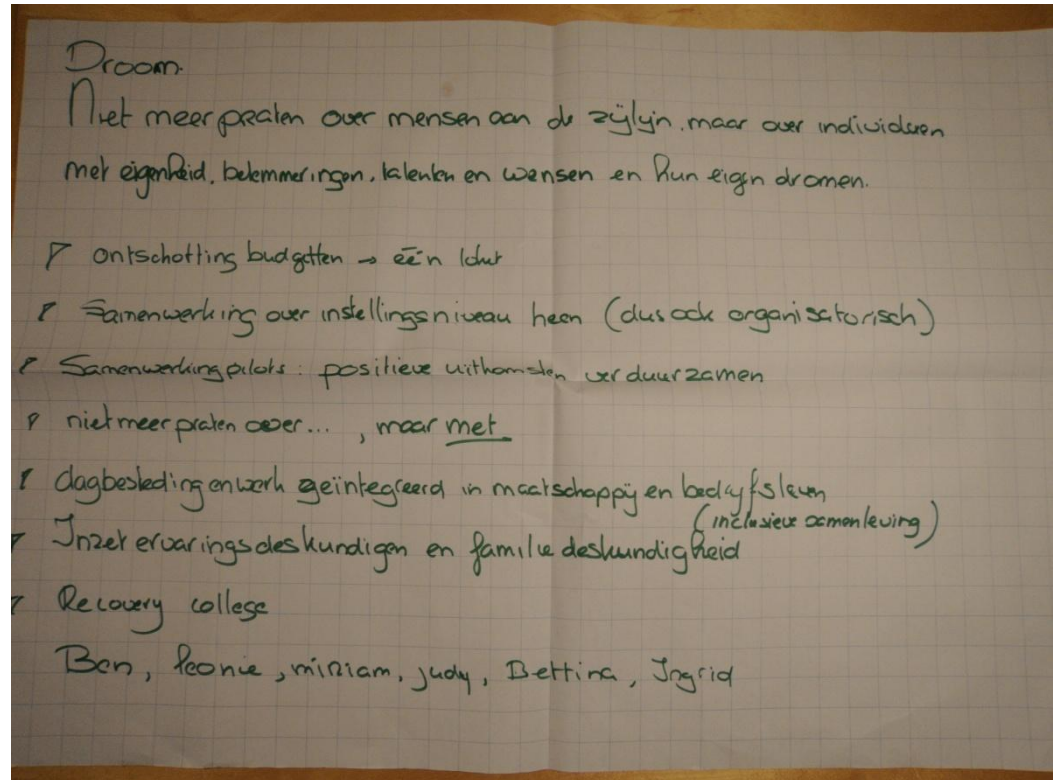 Droom.
Niet meer praten over mensen aan de zijlijn, maar over individuen
met eigenheid, belemmeringen, talenten en wensen en hun eigen dromen.
ontschotting budgetten → één loket
Samenwerking over instellingsniveau heen (dus ook organisatorisch)
Samenwerking pilots: positieve uitkomsten verduurzamen
niet meer praten over..., maar met
dagbesteding en werk geïntegreerd in maatschappij en bedrijfsleven
(inclusieve samenleving)
Inzet ervaringsdeskundigen en familie deskundigheid
Recovery college
Ben, Leonie, miriam, judy, Bettina, Ingrid